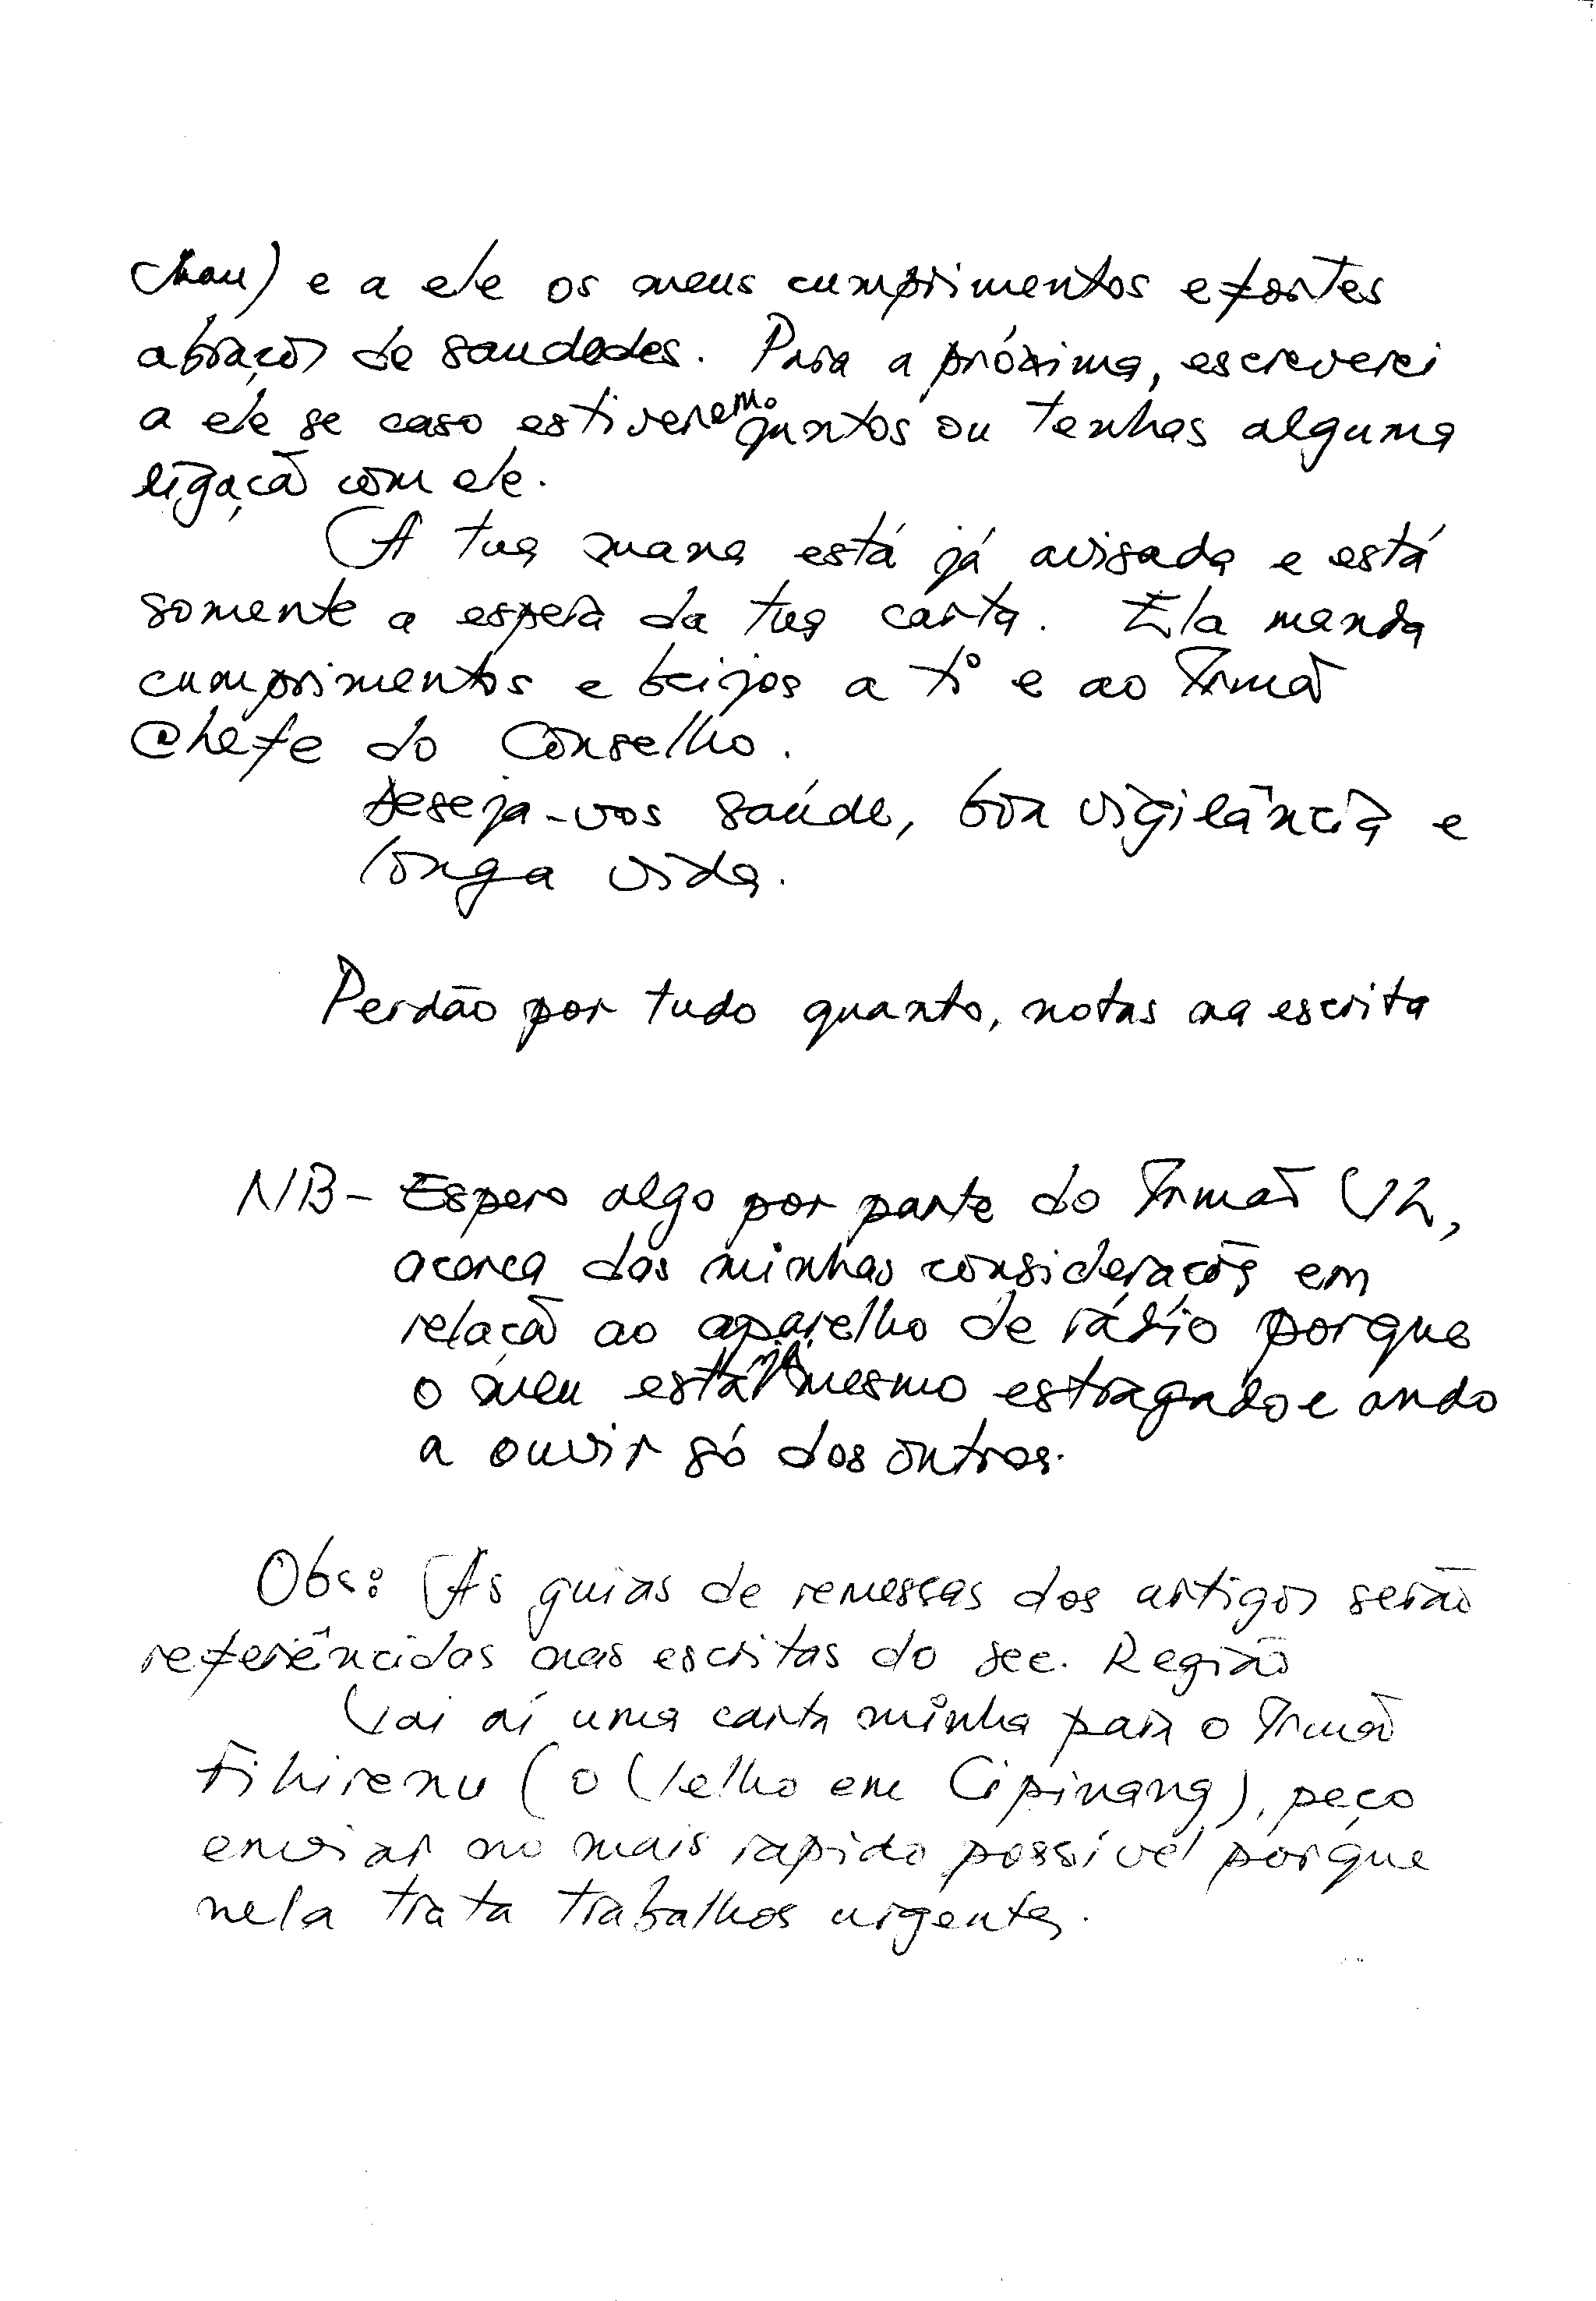 chau) e a ele os meus cumprimentos e fortes
abraços de saudades. Para a próxima, escreverei
a ele se caso estiverem juntos ou tenhas alguma
ligação com ele.
A tua mana está já avisada e está
somente a espera da tua carta. Ela manda
cumprimentos e beijos a ti e ao Irmão
Chefe do Conselho.
Deseja-vos saúde, boa vigilância e
longa vida.
Perdão por tudo quanto, notas na escrita
NB- Espero algo por parte do Irmão
acerca das minhas considerações em
relação ao aparelho de rádio porque
o meu está mesmo estragado e ando
a ouvir só dos outros.
Obs: As guias de remessas dos artigos serão
referêncidas nas escritas do sec. Região
Vai aí uma carta minha para o Irmão
Filirenu (o Velho em Cipinang), peço
enviar no mais rapido possível porque
nela trata trabalhos urgentes.